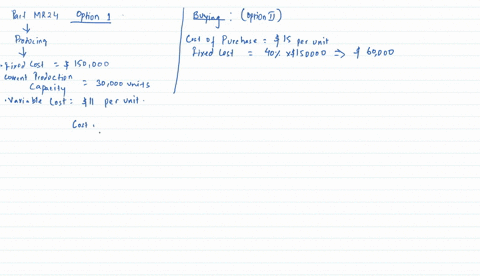 Part MR24 Option 1
Producing
• Fixed Cost = $ 150,000
Current Production Capacity = 30,000 units
• Variable Cost = $11 per unit.
Cost.
Buying : (Option II)
Cost of Purchase = $15 per unit
Fixed Cost = 40% x $150000 => $ 60,000